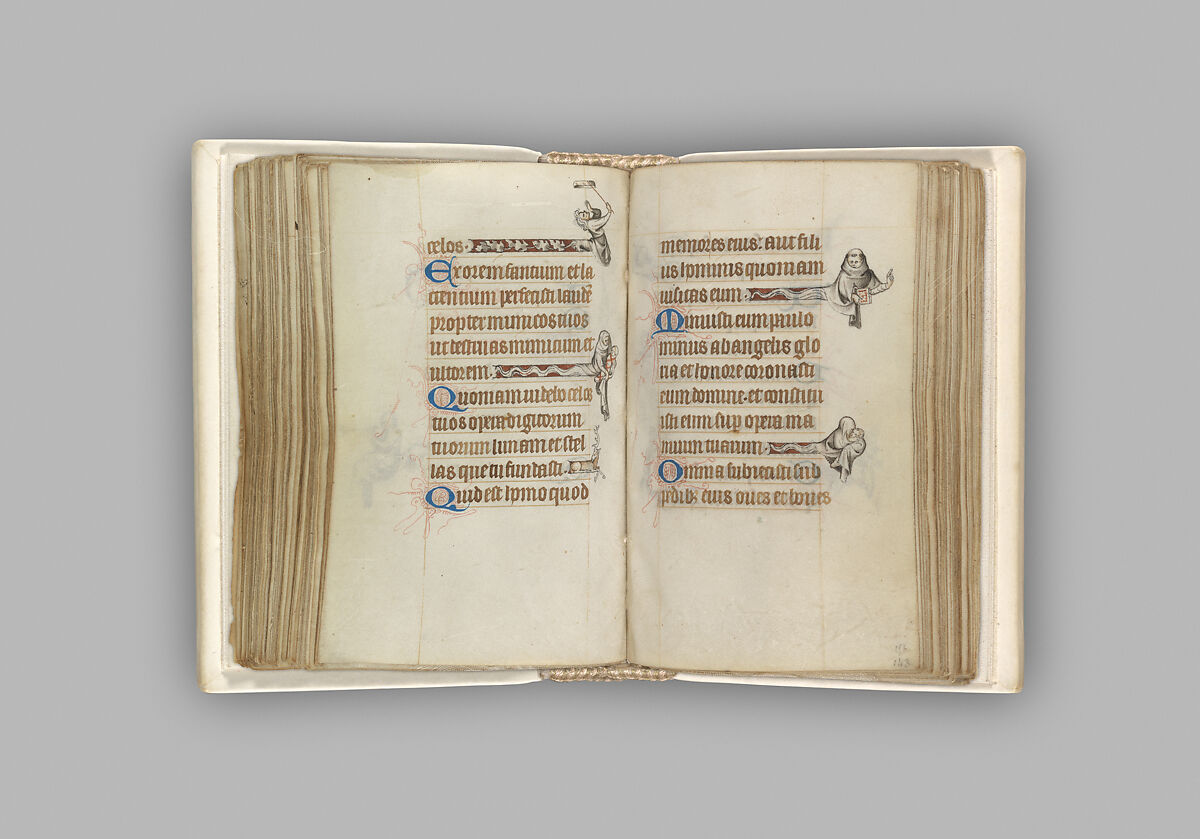 celos.
Ex orem fantium et la
ctentium perfecisti laudē
propter inimicos tuos
ut destruas inimicum et
ultorem.
Quoniam uidebo celos
tuos opera digitorum
tuorum lunam et stel
las que tu fundasti.
Quid est homo quod
memores eius: aut fili
us hominis quoniam
uisitas eum
Minuisti eum paulo
minus ab angelis glo
ria et honore coronasti
eum domine. et constitu
isti eum sup opera ma
nuum tuarum
Omnia subiecisti sub
pedib; eius oues et boues
143